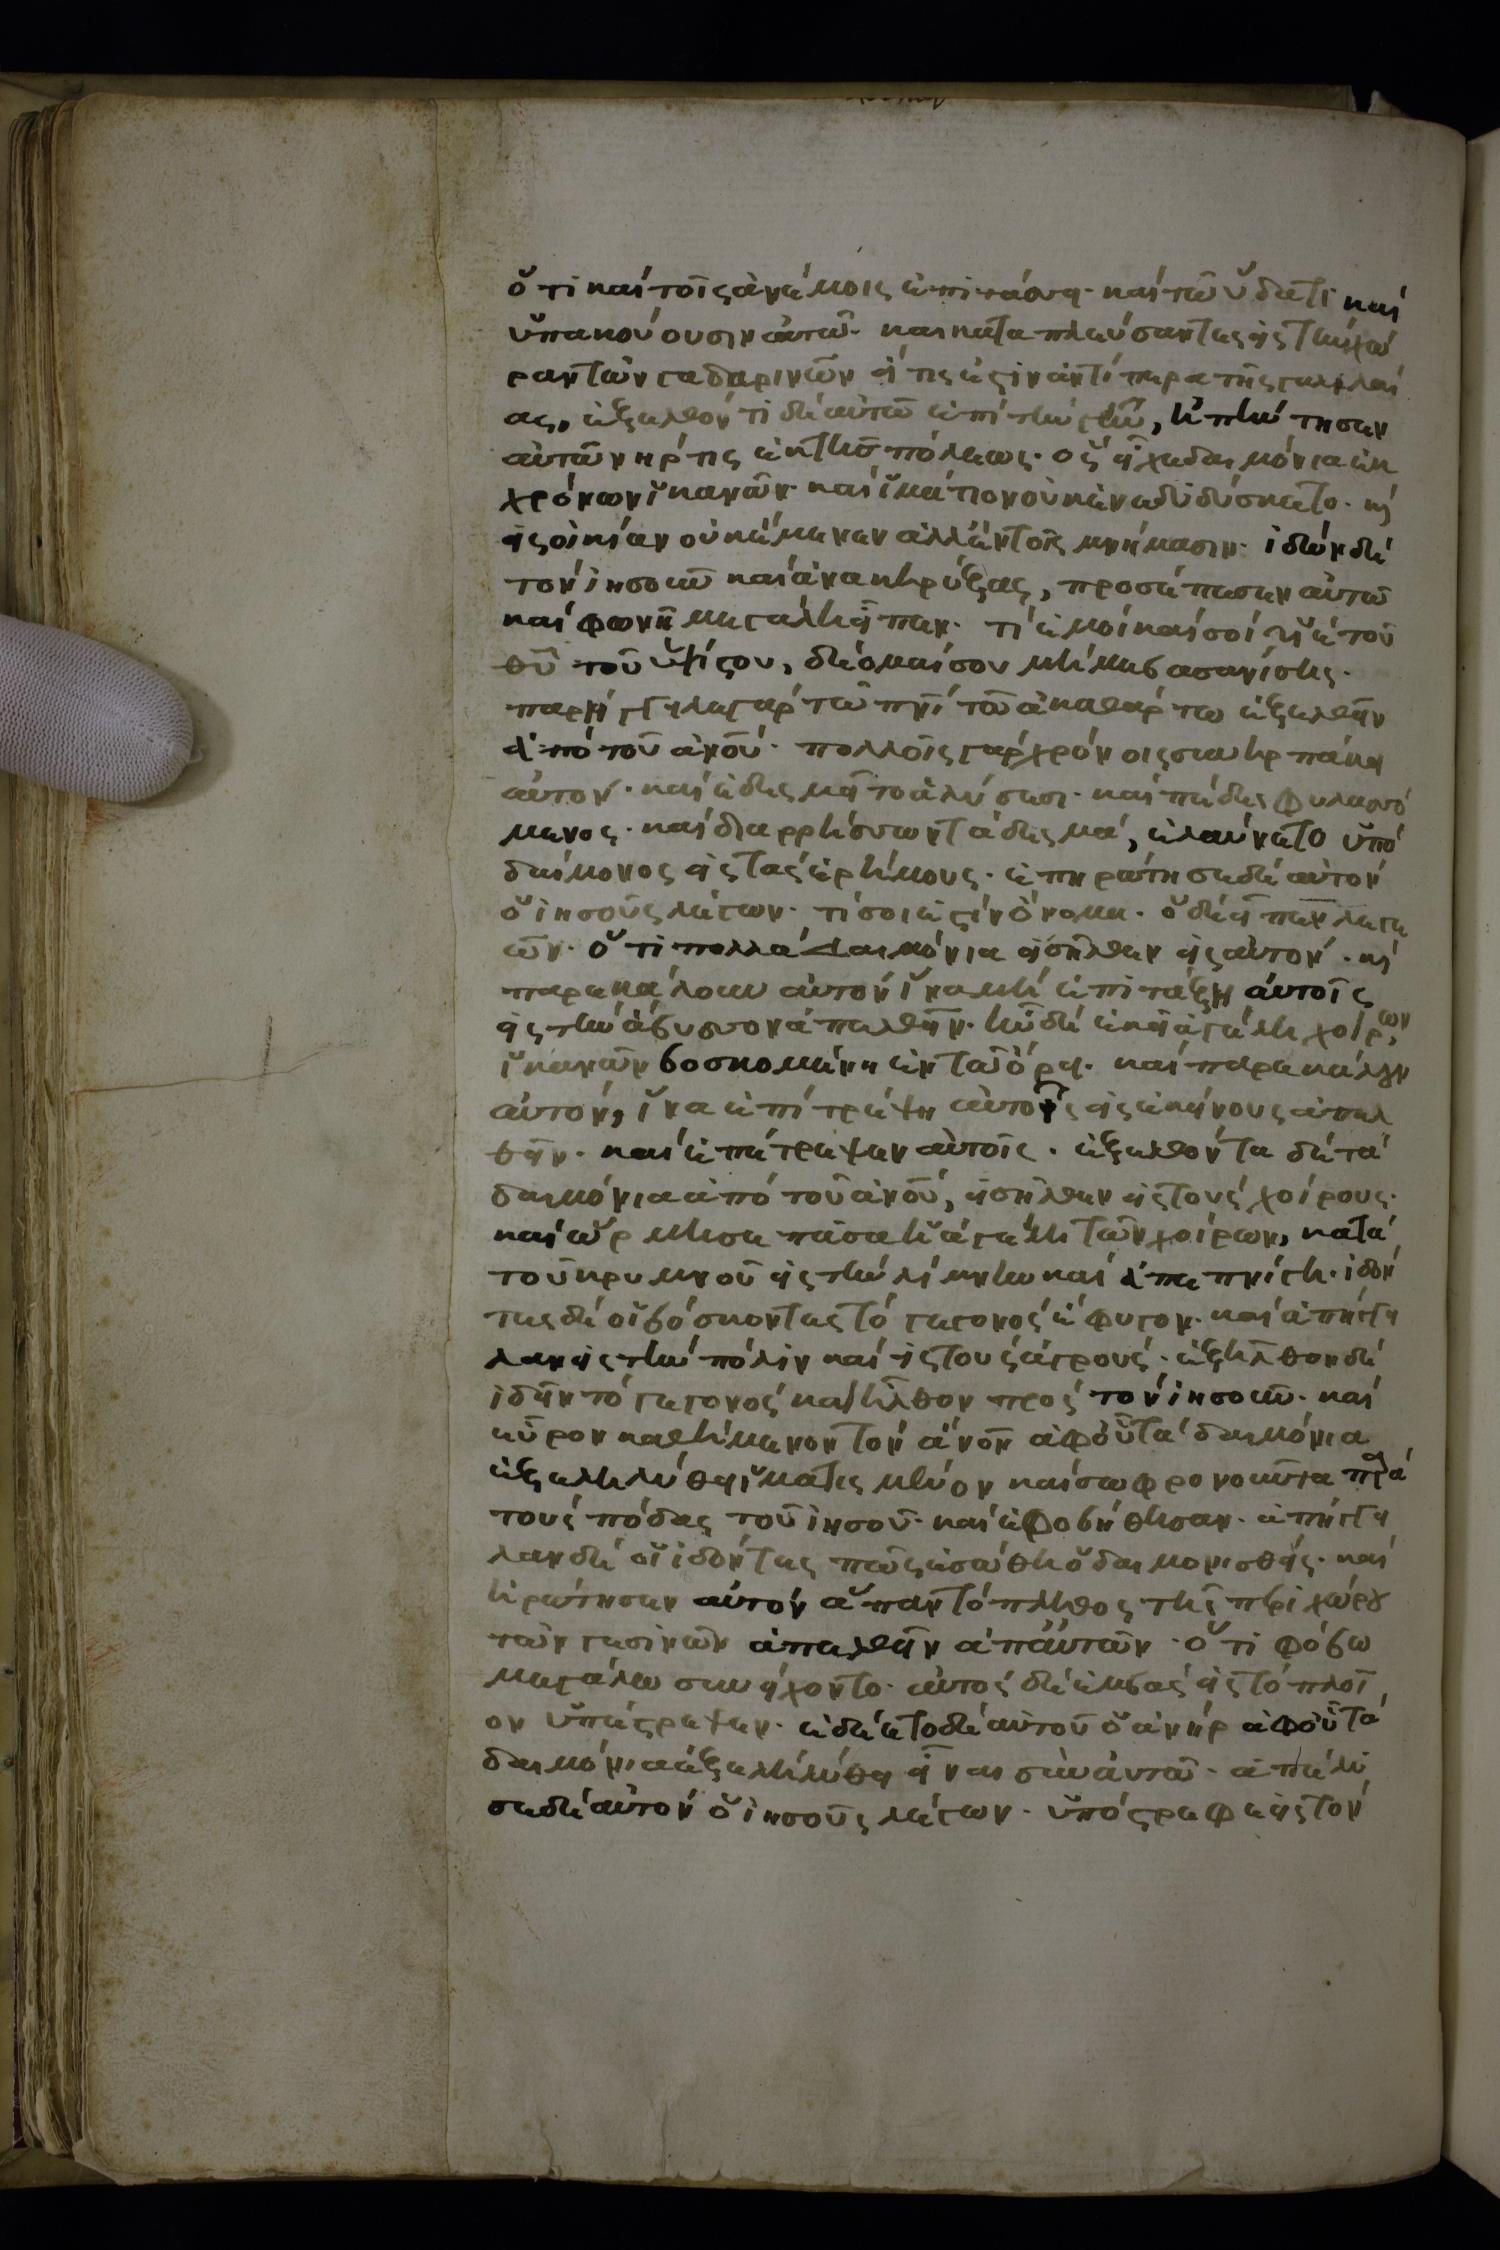 ὅτι καὶ τοῖς ἀνέμοις ἐπιτάσσει· καὶ τῶ ὕδατι καὶ
ὑπακούουσιν αὐτῶ· καὶ κατέπλευσαν τες εἰς τὴν χώ
ραν τῶν γαδαρινῶν ἥτις ἐστὶν ἀντίπερα τῆς γαλιλαί
ας, ἐξελθόντι δὲ αὐτῶ ἐπὶ τὴν γῆν, ὑπήντησεν
αὐτῶ ἀνήρ τις ἐκ τῆς πόλεως· ὃς εἶχε δαιμόνια ἐκ
χρόνων ἱκανῶν· καὶ ἱμάτιον οὐκ ἐνεδιδύσκετο· κ(αὶ)
εἰς οἰκίαν οὐκ ἔμενεν ἀλλ' ἐν τοῖς μνήμασιν· ἰδὼν δὲ
τὸν ἰησοῦν καὶ ἀνακηρύξας, προσέπεσεν αὐτῶ
καὶ φωνῆ μεγάλη εἶπεν· τί ἐμοὶ καὶ σοὶ υἱὲ τοῦ
θῦ τοῦ ὑψίστου, δέομαί σου μή με βασανίσης·
παρήγγειλε γὰρ τῶ πνι τῶ ἀκαθάρτω ἐξελθεῖν
ἀπὸ τοῦ ανου· πολλοῖς γὰρ χρόνοις συνηρπάκει
αὐτόν· καὶ ἐδεσμεῖτο ἁλύσεσι· καὶ πέδαις φυλασσό
μενος· καὶ διαρρήσσων τὰ δεσμά, ἐλαύνετο ὑπὸ
δαίμονος εἰς τὰς ἐρήμους· ἐπηρώτησε δὲ αὐτὸν
ὁ ἰησοῦς λέγων· τί σοι ἐστὶν ὄνομα· ὁ δὲ εἶπεν λεγε
ών· ὅτι πολλὰ δαιμόνια εἰσῆλθεν εἰς αὐτόν· κ(αὶ)
παρεκάλουν αὐτὸν ἵνα μὴ ἐπιτάξη αὐτοῖς
εἰς τὴν ἄβυσσον ἀπελθεῖν· ἦν δὲ ἐκεῖ ἀγέλη χοίρων
ἱκανῶν βοσκομένη ἐν τῶ ὄρει· καὶ παρεκάλουν
αὐτόν, ἵνα ἐπιτρέψη αὐτοῖς εἰς ἐκείνους ἀπελ
θεῖν· καὶ ἐπέτρεψεν αὐτοῖς· ἐξελθόντα δὲ τὰ
δαιμόνια ἀπὸ τοῦ ανου, εἰσῆλθεν εἰς τοὺς χοίρους·
καὶ ὥρμησε πᾶσα ἡ ἀγέλη τῶν χοίρων, κατὰ
τοῦ κρημνοῦ εἰς τὴν λίμνην καὶ ἀπεπνίγη· ἰδόν
τες δὲ οἱ βόσκοντες τὸ γεγονὸς ἔφυγον· καὶ ἀπήγγει
λαν εἰς τὴν πόλιν καὶ εἰς τοὺς ἀγρούς· ἐξῆλθον δὲ
ἰδεῖν τὸ γεγονὸς καὶ ἦλθον πρὸς τὸν ἰησοῦν· καὶ
εὗρον καθήμενον τὸν ανον ἀφ' οὗ τὰ δαιμόνια
ἐξεληλύθει ἱματισμένον καὶ σωφρονοῦντα παρὰ
τοὺς πόδας τοῦ ἰησοῦ· καὶ ἐφοβήθησαν· ἀπήγγει
λαν δὲ οἱ ἰδόντες πῶς ἐσώθη ὁ δαιμονισθείς· καὶ
ἠρώτησεν αὐτὸν ἅπαν τὸ πλῆθος τῆς περιχώρου
τῶν γεσινῶν ἀπελθεῖν ἀπ' αὐτῶν· ὅτι φόβω
μεγάλω συνείχοντο· αὐτὸς δὲ ἐμβὰς εἰς τὸ πλοῖ
ον ὑπέστρεψεν· ἐδέετο δὲ αὐτοῦ ὁ ἀνὴρ ἀφ' οὗ τὰ
δαιμόνια ἐξεληλύθει εἶναι σὺν αὐτῶ· ἀπέλυ
σε δὲ αὐτὸν ὁ ἰησοῦς λέγων· ὑπόστρεφε εἰς τὸν